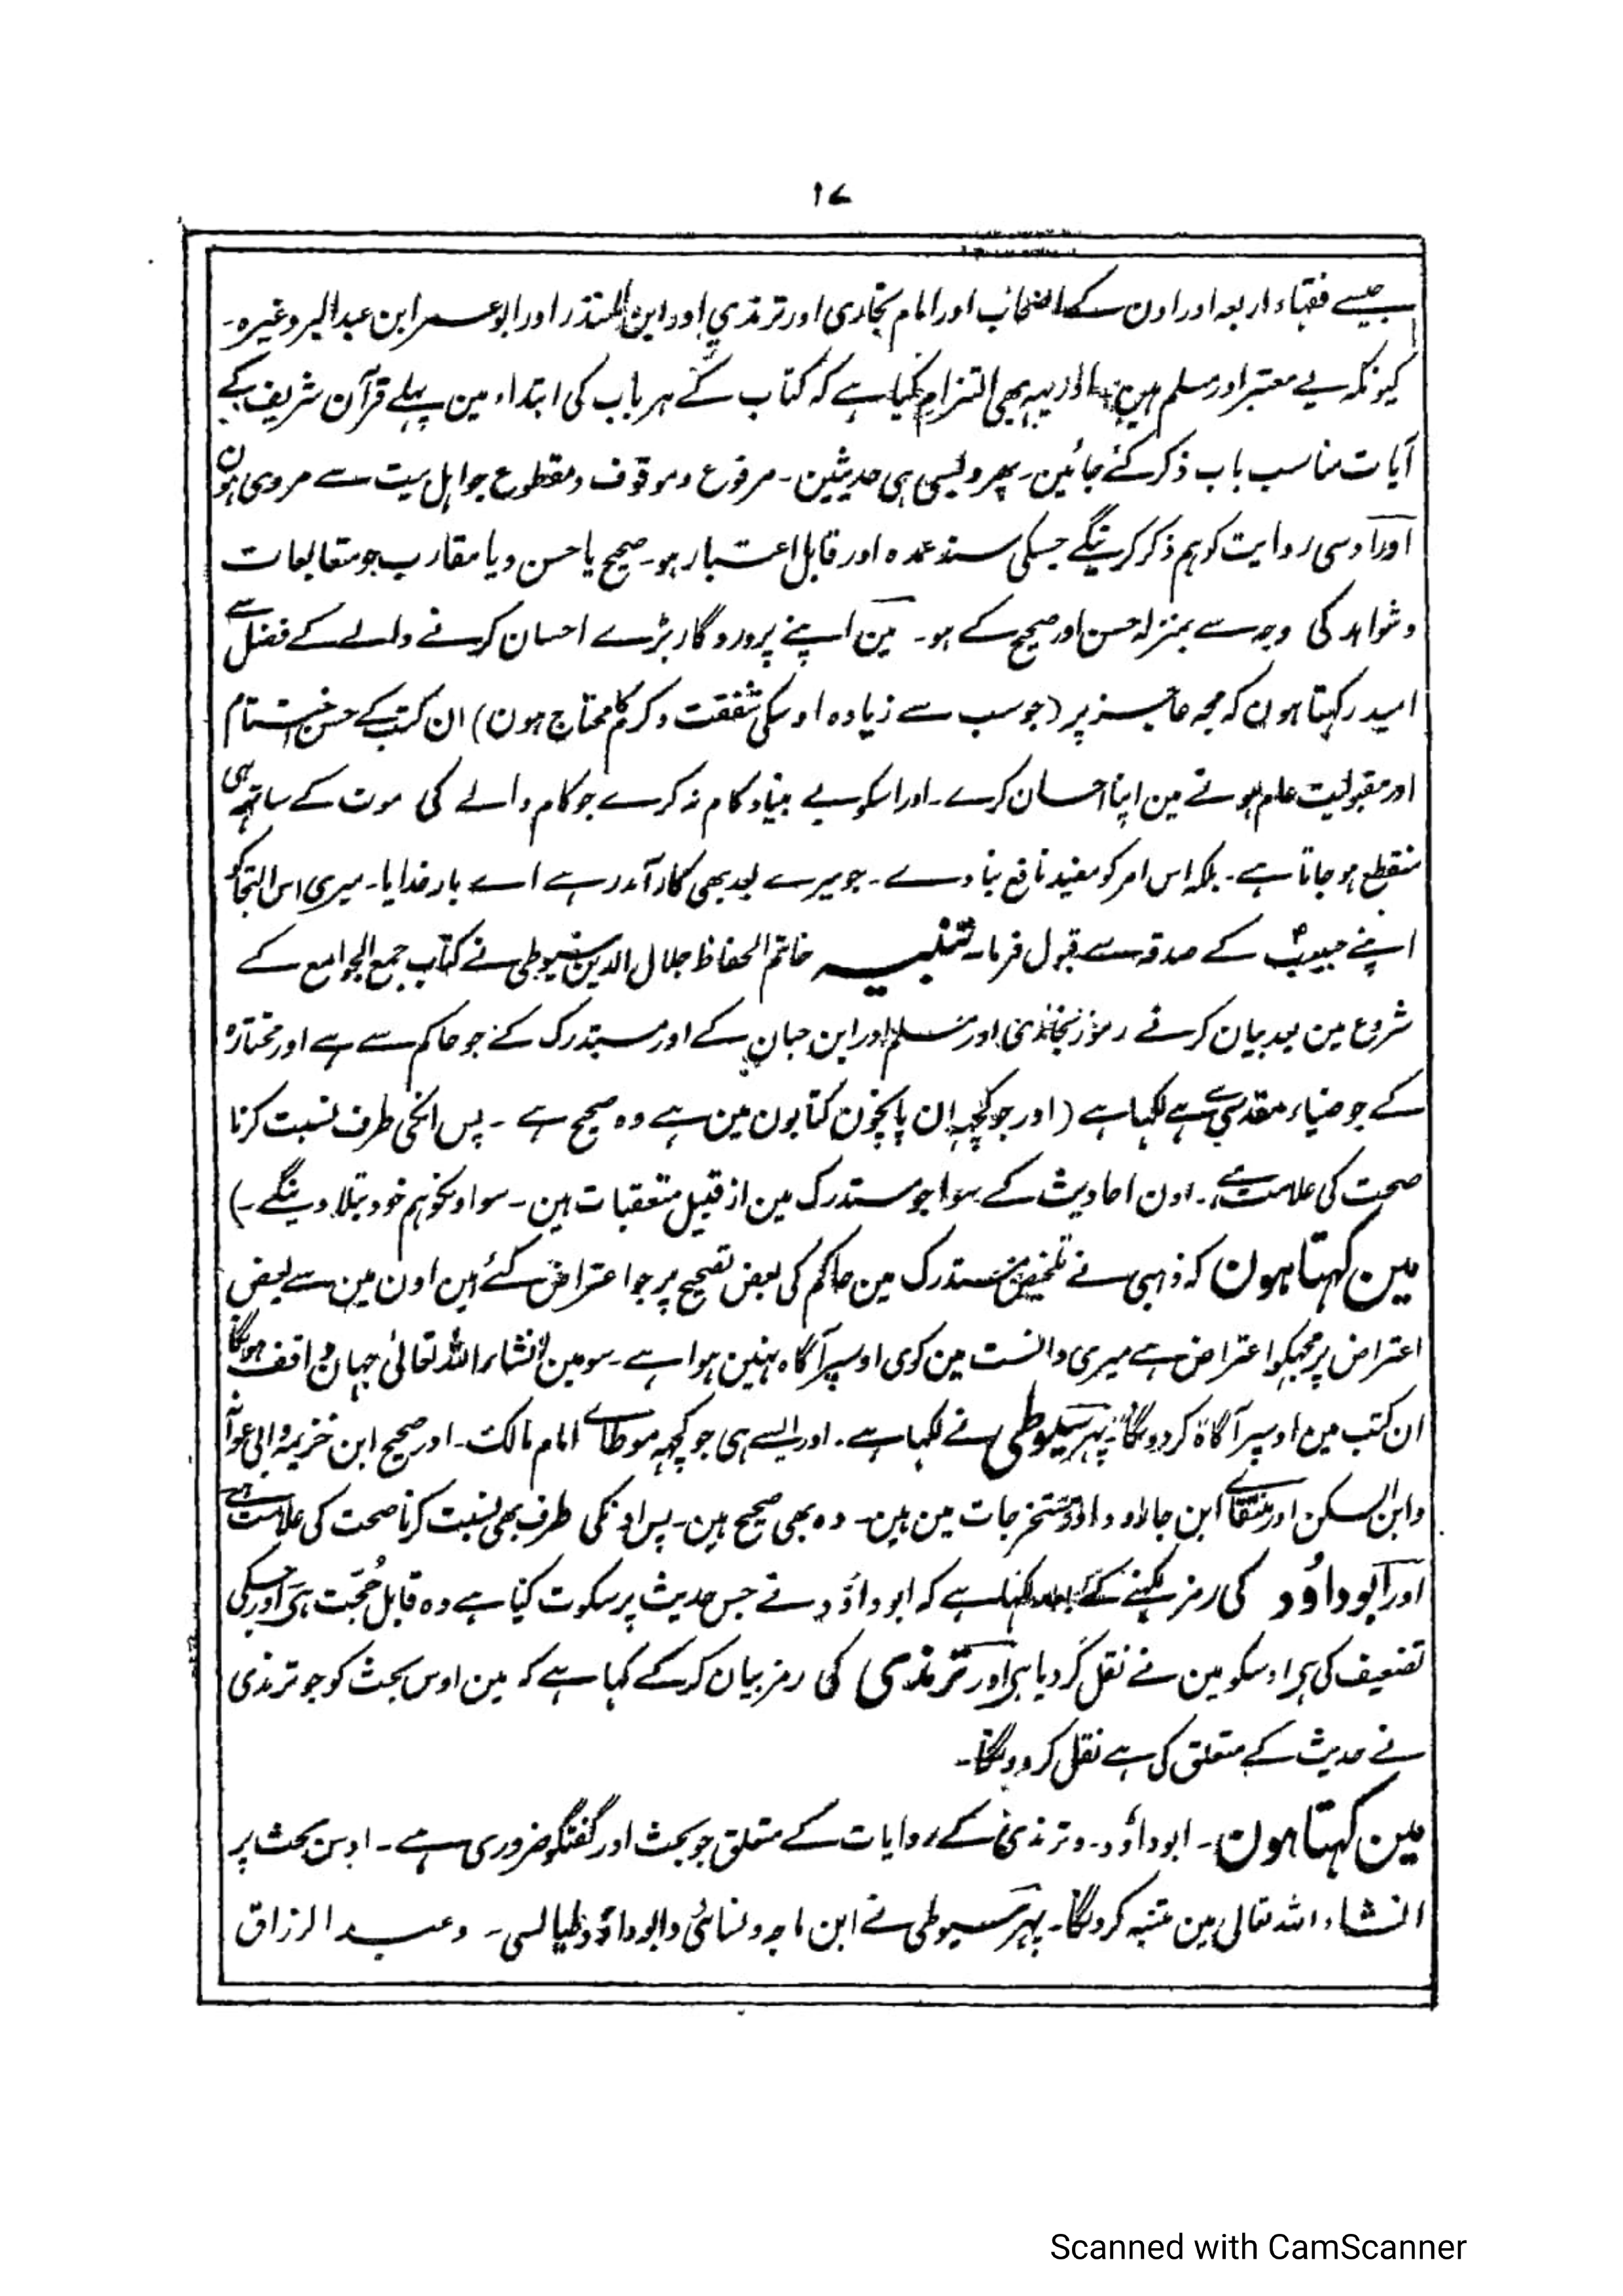 ۱۷
جیسے فقہاء اربعہ اور اون کے اصحاب اور امام بخاری اور ترمذی اور ابن المنذر اور ابو عمر ابن عبدالبر وغیرہ۔
کیونکہ یے معتبر اور مسلم ہین۔ اور یہہ بھی التزام کیا ہے کہ کتاب کے ہر باب کی ابتداء مین پہلے قرآن شریف کے
آیات مناسب باب ذکر کئے جائین۔ پھر ویسی ہی حدیثین۔ مرفوع و موقوف و مقطوع جو اہل بیت سے مروی ہون
اور اوسی روایت کو ہم ذکر کرینگے جسکی سند عمدہ اور قابل اعتبار ہو۔ صحیح یا حسن و یا مقارب جو متابعات
و شواہد کی وجہ سے بمنزلہ حسن اور صحیح کے ہو۔ مین اپنے پروردگار بڑے احسان کرنے والے کے فضل سے
امید رکہتا ہون کہ مجہ عاجز پر (جو سب سے زیادہ اوسکی شفقت و کرم کا محتاج ہون) ان کتب کے حسن اختتام
اور مقبولیت عام ہونے مین اپنا احسان کرے۔ اور اسکو بے بنیاد کام نہ کرے جو کام والے کی موت کے ساتھ ہی
منقطع ہو جاتا ہے۔ بلکہ اس امر کو مفید نافع بنا دے۔ جو میرے بعد بھی کار آمد رہے اے بار خدایا۔ میری اس التجا کو
اپنے حبیبؐ کے صدقہ سے قبول فرما۔ تنبیہ خاتم الحفاظ جلال الدین سیوطی نے کتاب جمع الجوامع کے
شروع مین بعد بیان کرنے رموز بخاری اور مسلم اور ابن حبان کے اور مستدرک کے جو حاکم سے ہے اور مختارہ
کے جو ضیاء مقدسی سے ہے لکہا ہے (اور جو کچہہ ان پانچون کتابون مین ہے وہ صحیح ہے۔ پس انکی طرف نسبت کرنا
صحت کی علامت ہے۔ اون احادیث کے سوا جو مستدرک مین از قبیل متعقبات ہین۔ سو اونکو ہم خود بتلا دینگے۔)
مین کہتا ہون کہ ذہبی نے تلخیص مستدرک مین حاکم کی بعض تصحیح پر جو اعتراض کئے ہین اون مین سے بعض
اعتراض پر مجہکو اعتراض ہے میری دانست مین کوی اوسپر آگاہ نہین ہوا ہے۔ سو مین انشاء اللہ تعالیٰ جہان واقف ہونگا
ان کتب مین اوسپر آگاہ کر دونگا۔ پہر سیوطی نے لکہا ہے۔ اور ایسے ہی جو کچہہ موطائے امام مالک۔ اور صحیح ابن خزیمہ و ابی عوانہ
و ابن السکن اور منتقائے ابن جارود و اور مستخرجات مین ہین۔ وہ بھی صحیح ہین۔ پس اونکی طرف بھی نسبت کرنا صحت کی علامت ہے
اور ابوداؤد کی رمز لکہنے کے بعد لکہا ہے کہ ابوداؤد نے جس حدیث پر سکوت کیا ہے وہ قابل حجت ہی اور جسکی
تضعیف کی ہی اوسکو مین نے نقل کر دیا ہی اور ترمذی کی رمز بیان کر کے کہا ہے کہ مین اوس بحث کو جو ترمذی
نے حدیث کے متعلق کی ہے نقل کر دونگا۔
مین کہتا ہون۔ ابوداؤد۔ و ترمذی کے روایات کے متعلق جو بحث اور گفتگو ضروری ہے۔ اوس بحث پر
انشاء اللہ تعالی مین متنبہ کر دونگا۔ پہر سیوطی نے ابن ماجہ و نسائی و ابوداؤد طیالسی۔ و عبد الرزاق
Scanned with CamScanner